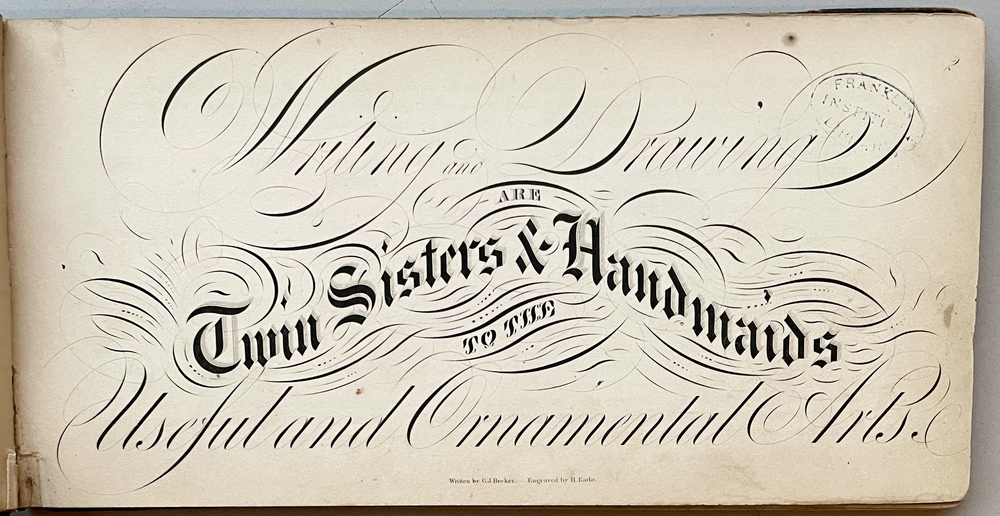 Writing and Drawing
FRANKLIN
INSTITUTE
ARE
Twin Sisters & Handmaids
TO THE
Useful and Ornamental Arts.
Written by G.J.Becker. Engraved by H. Earle.